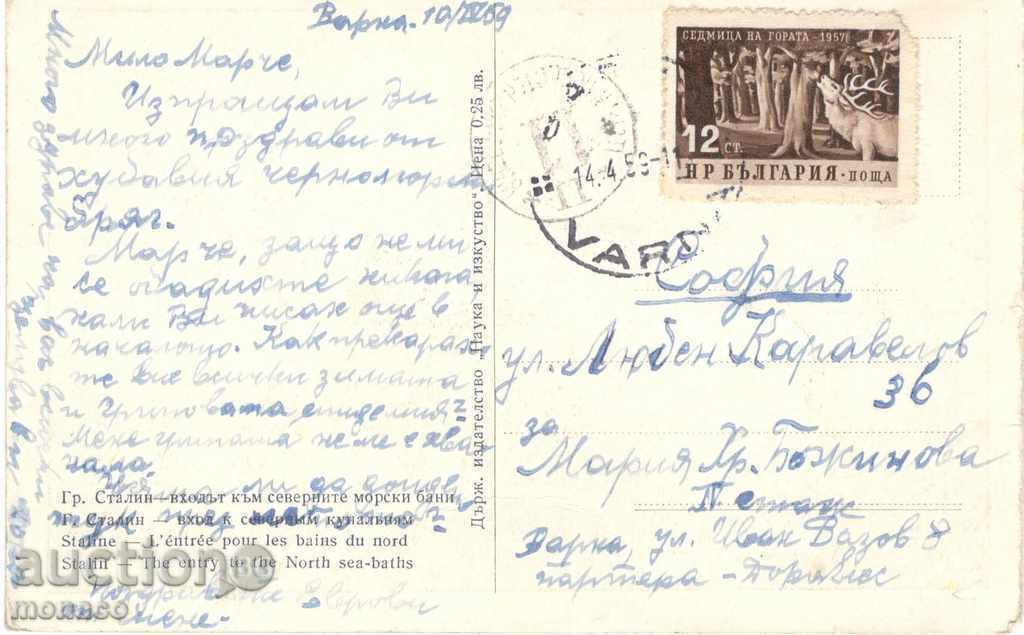 Варна. 10/IV 59
Мила Марче,
Изпращам Ви
много поздрави от
хубавия черноморски
бряг.
Марче, защо не ми
се обадихте никога
нали Ви писах още в
началото. Как прекарах-
те Вие всички зимата
и грипната епидемия?
Мене грипата не ме е хва-
нала.
ли да дойде
през
Поздрави на
Много здраве на вас всички
Целува Ви
Гр. Сталин — входът към северните морски бани
Г. Сталин — вход к северным купальням
Staline — L'éntrée pour les bains du nord
Stalin — The entry to the North sea-baths
Държ. издателство „Наука и изкуство“. Цена 0,25 лв.
СЕДМИЦА НА ГОРАТА · 1957
12 СТ.
НР БЪЛГАРИЯ · ПОЩА
14.4.59-11
VARNA
София
ул. Любен Каравелов
36
за
Мария Хр. Божинова
IV етаж
Варна, ул. Иван Вазов 8
партера –
auction
monaco